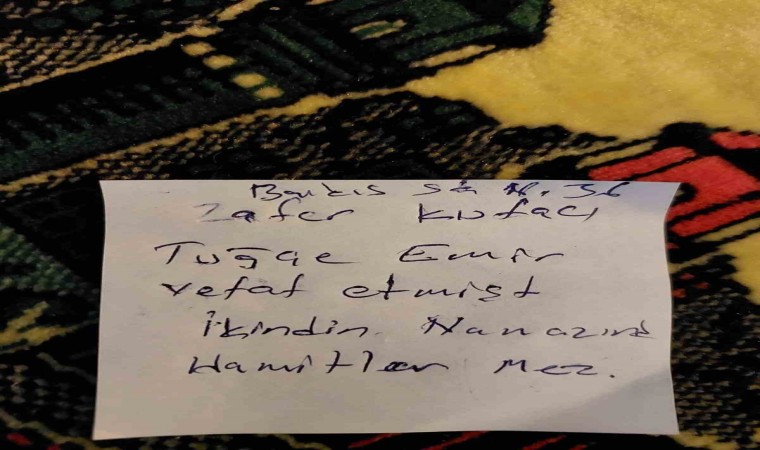 Barış Sk N. 36
Zafer Kutacı
Tuğçe Emir
vefat etmişt
İkindin Namazına
Hamitler Mez.